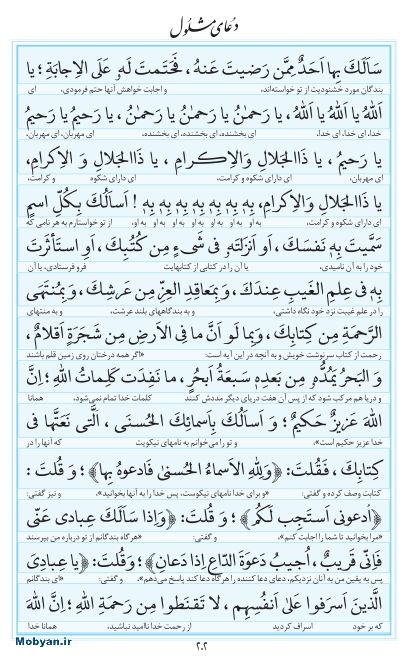 دعای مشلول
سَأَلَكَ بِها اَحَدٌ مِمَّن رَضيتَ عَنهُ ، فَحَتَمتَ لَهُ عَلَى الاِجابَةِ ؛ يا
بندگان مورد خشنودیت از تو خواسته‌اند، و اجابت خواهش آنها حتم فرمودی، ای
اَللهُ يا اَللهُ يا اَللهُ، يا رَحمٰنُ يا رَحمٰنُ يا رَحمٰنُ، يا رَحيمُ يا رَحيمُ
خدا، ای خدا، ای خدا، ای بخشنده، ای بخشنده، ای بخشنده، ای مهربان، ای مهربان،
يا رَحيمُ ، يا ذَاالجَلالِ وَالاِكرامِ ، يا ذَاالجَلالِ وَ الاِكرامِ،
ای مهربان، ای دارای شکوه و کرامت، ای دارای شکوه و کرامت،
يا ذَاالجَلالِ وَالاِكرامِ، بِهِ بِهِ بِهِ بِهِ بِهِ بِهِ بِهِ ! اَسأَلُكَ بِكُلِّ اسمٍ
ای دارای شکوه و کرامت، به او به او به او به او به او به او به او، از تو خواستارم به هر نامی که
سَمَّيتَ بِهِ نَفسَكَ ، اَو اَنزَلتَهُ فى شَىءٍ مِن كُتُبِكَ ، اَوِ استَأثَرتَ
خود را به آن نامیدی، یا آن را در کتابی از کتابهایت فرو فرستادی، یا آن
بِهِ فى عِلمِ الغَيبِ عِندَكَ ، وَبِمَعاقِدِ العِزِّ مِن عَرشِكَ ، وَبِمُنتَهَى
را در علم غیبت نزد خود نگاه داشتی، و به بندگاههای بلند عرشت، و به منتهای
الرَّحمَةِ مِن كِتابِكَ ، وَبِما لَو اَنَّ ما فِى الاَرضِ مِن شَجَرَةٍ اَقلامٌ ،
رحمت از کتاب سرنوشت خویش و به آنچه در این آیه است: «اگر همه درختان روی زمین قلم باشند
وَ البَحرُ يَمُدُّهُ مِن بَعدِهِ سَبعَةُ اَبحُرٍ ، ما نَفِدَت كَلِماتُ اللهِ ؛ اِنَّ
و دریا هم مرکب شود که از پس آن هفت دریای دیگر مددش کنند کلمات خدا تمام نمی‌شود، همانا
اللهَ عَزيزٌ حَكيمٌ ؛ وَ اَسأَلُكَ بِاَسمائِكَ الحُسنَى ، الَّتى نَعَتَّها فى
خدا عزیز حکیم است»، و تو را می‌خوانم به نامهای نیکویت که آنها را در
كِتابِكَ ، فَقُلتَ: ﴿وَلِلهِ الاَسماءُ الحُسنىٰ فَادعوهُ بِها﴾ ؛ وَ قُلتَ :
کتابت وصف کرده و گفتی: «و برای خدا نامهای نیکوست، پس خدا را به آنها بخوانید»، و نیز گفتی:
﴿اُدعونى اَستَجِب لَكُم﴾ ؛ وَ قُلتَ: ﴿وَاِذا سَأَلَكَ عِبادى عَنّى
«مرا بخوانید تا شما را اجابت کنم»، و گفتی: «هرگاه بندگانم از تو درباره من بپرسند
فَاِنّى قَريبٌ ، اُجيبُ دَعوَةَ الدّاعِ اِذا دَعانِ﴾ ؛ وَقُلتَ: ﴿يا عِبادِىَ
پس به یقین من به آنان نزدیکم، دعای دعا کننده را هرگاه دعا کند پاسخ می‌دهم»، و گفتی: «ای بندگانم
الَّذينَ اَسرَفوا عَلىٰ اَنفُسِهِم ، لا تَقنَطوا مِن رَحمَةِ اللهِ ؛ اِنَّ اللهَ
که بر خود اسراف کردید از رحمت خدا ناامید نباشید، همانا خدا
٢٠٢
Mobyan.ir